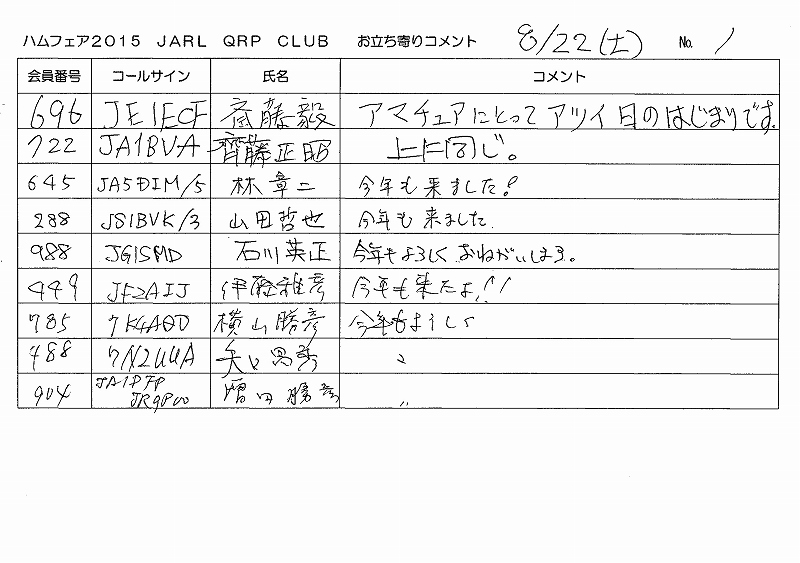 ハムフェア2015 JARL QRP CLUB お立ち寄りコメント 8/22(土) No. 1
会員番号 コールサイン 氏名 コメント
696 JE1ECF 斎藤毅 アマチュアにとってアツイ日のはじまりです。
722 JA1BVA 齊藤正昭 上に同じ。
645 JA5DIM/5 林章二 今年も来ました!
288 JS1BVK/3 山田哲也 今年も来ました
988 JG1SMD 石川英正 今年もよろしくおねがいします。
449 JF2AIJ 伊藤雅彦 今年も来たよ!!
785 7K4AOD 横山勝彦 今年もよろし
488 7N2UUA 〃
904 勝彦 〃